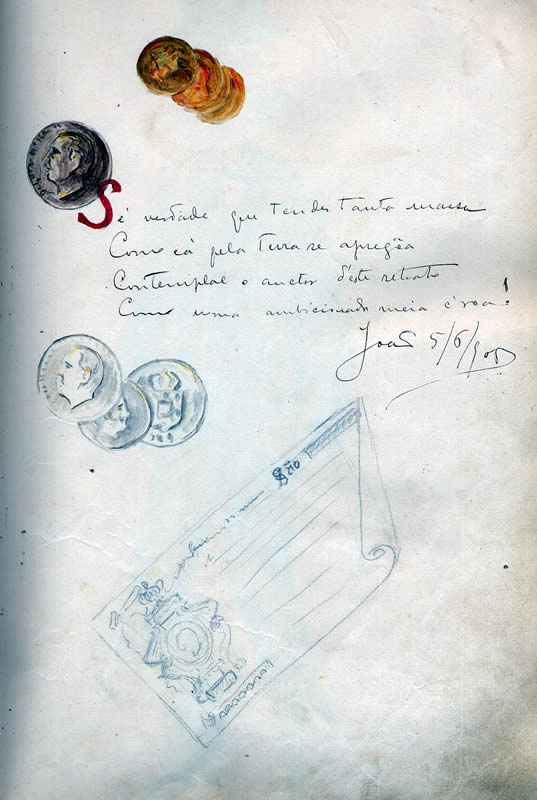 Sé verdade que tendes tanta massa
Como cá pela terra se apregôa
Contemplae o auctor d'este retrato
Como uma ambicionada meia c'rôa!
João 5/6/905